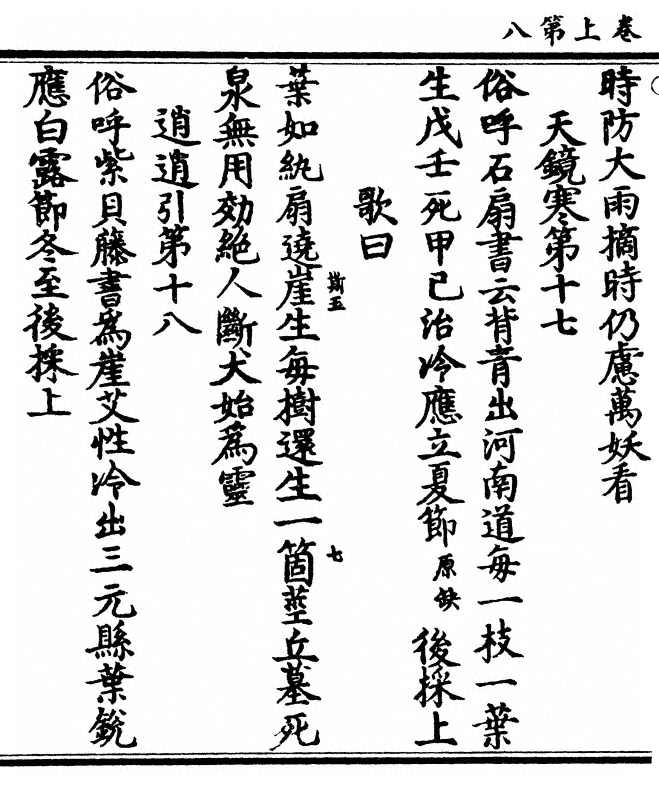 卷上第八
時防大雨摘時仍慮萬妖看
天鏡寒第十七
俗呼石扇書云背青出河南道每一枝一葉
生戊壬死甲己治冷應立夏節原缺後採上
歌曰
葉如紈扇遶崖生每樹還生一箇莖丘墓死
斯五
七
泉無用効絶人斷犬始為靈
逍遙引第十八
俗呼紫貝藤書為崖艾性冷出三元縣葉銳
應白露節冬至後採上